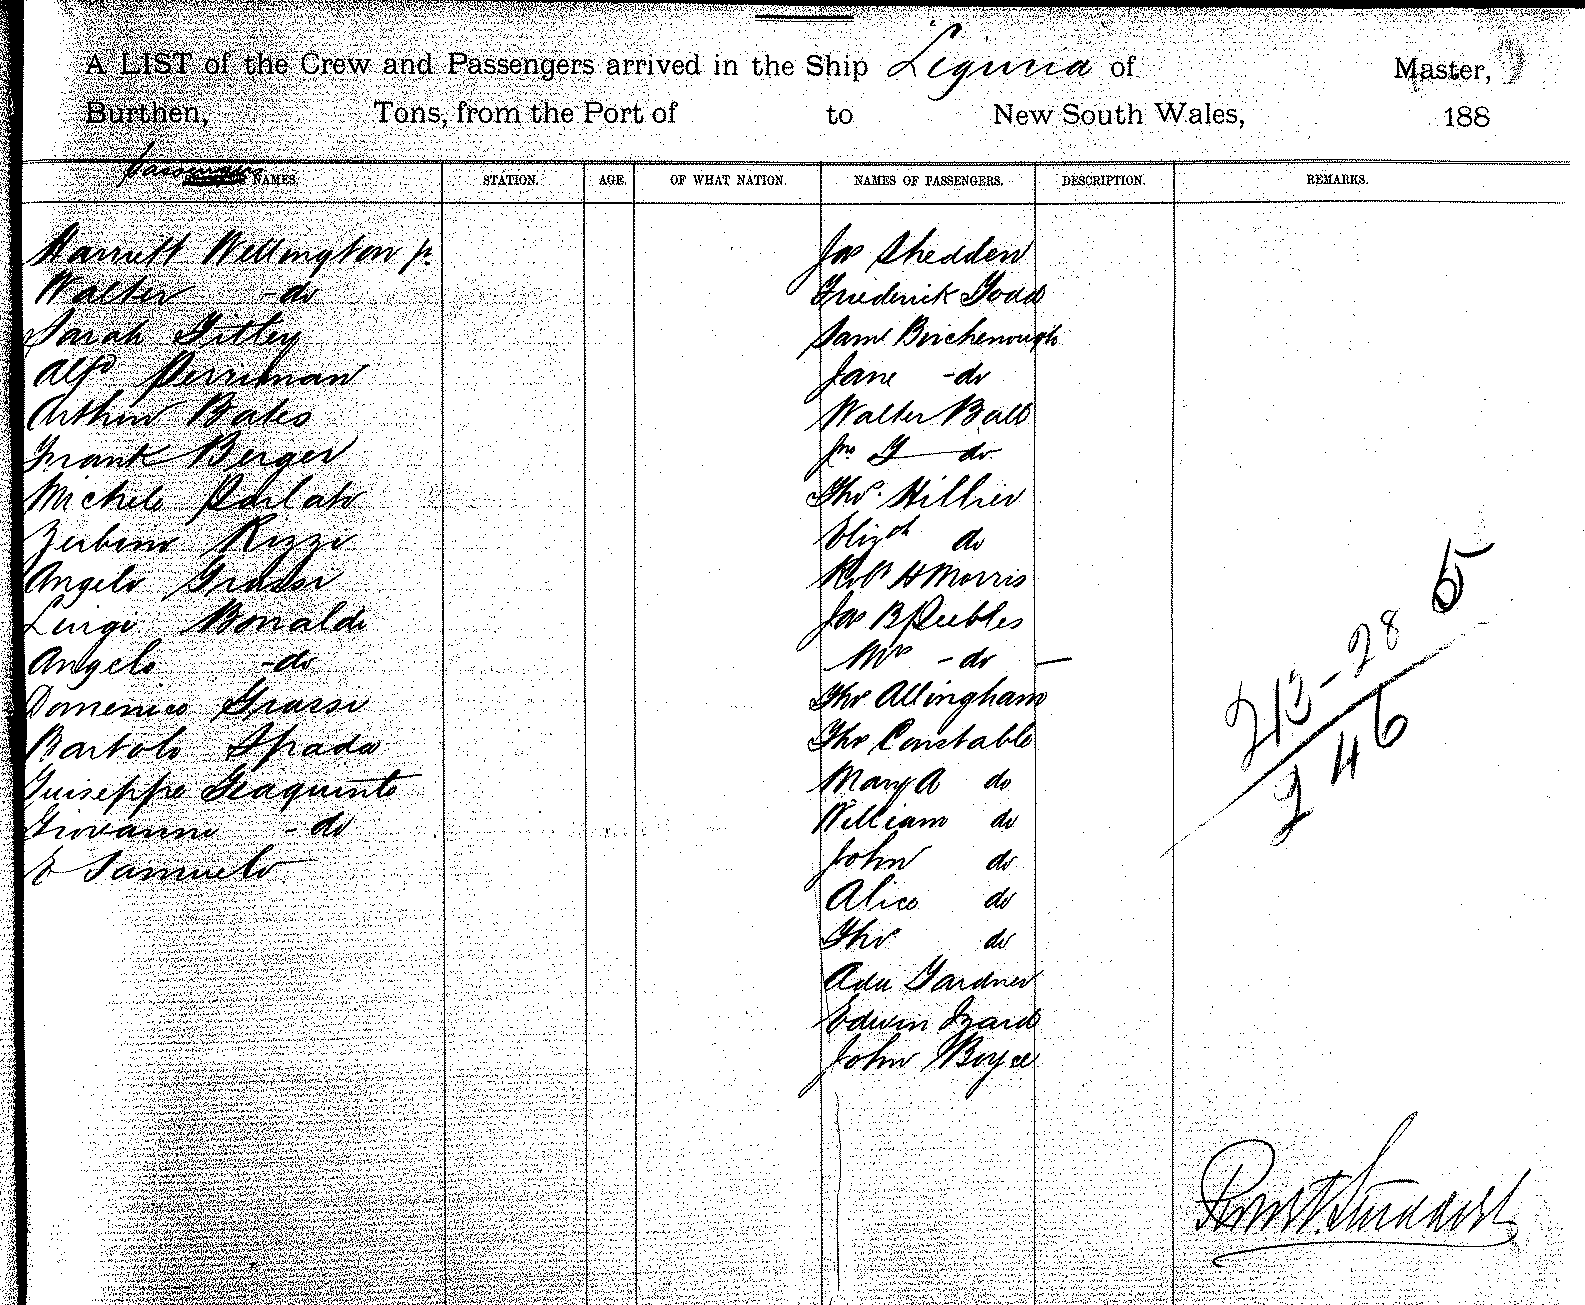 A LIST of the Crew and Passengers arrived in the Ship Liguria of Master,
Burthen, Tons, from the Port of to New South Wales, 188
Passengers NAMES. STATION. AGE. OF WHAT NATION. NAMES OF PASSENGERS. DESCRIPTION. REMARKS.
Harriett Wellington jr. Jas Shedden
Walter - do Frederick Todd
Sarah Titley Saml Birchenough
Alfd Perriman Jane - do
Arthur Bates Walter Ball
Frank Berger Jno G do
Michele Thos Hillier
Rizzi Elizth do
Angelo Grassi Robt H Morris
Luigi Bonaldi Jas B Peebles
Angelo - do Mrs - do
Domenico Grassi Thos Allingham
Bartolo Spada Thos Constable
Guiseppe Giaquinto Mary A do
Giovanni - do William do
E Samuelo John do
Alice do
Thos do
Ada Gardner
Edwin Izard
John Boyce
213 - 28 5
246